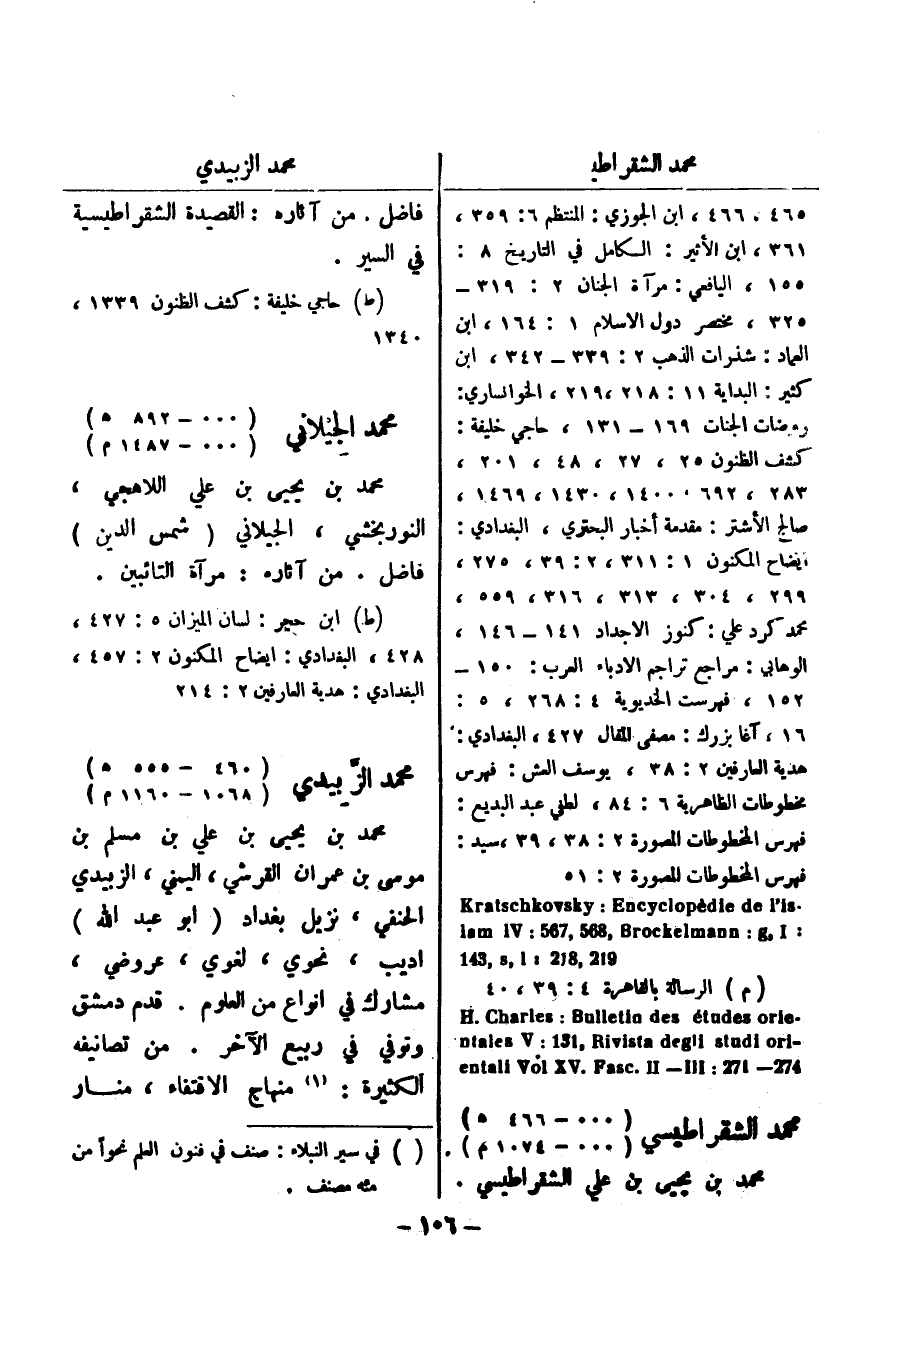 محمد الشقراطي
٤٦٥ ، ٤٦٦ ، ابن الجوزي : المنتظم ٦ : ٣٥٩ ،
٣٦١ ، ابن الأثير : الكامل في التاريخ ٨ :
١٥٥ ، اليافعي : مرآة الجنان ٢ : ٣١٩ –
٣٢٥ ، مختصر دول الاسلام ١ : ١٦٤ ، ابن
العماد : شذرات الذهب ٢ : ٣٣٩ – ٣٤٢ ، ابن
كثير : البداية ١١ : ٢١٨ ، ٢١٩ ، الخوانساري :
روضات الجنات ١٦٩ – ١٣١ ، حاجي خليفة :
كشف الظنون ٢٥ ، ٢٧ ، ٤٨ ، ٢٠١ ،
٢٨٣ ، ٦٩٢ ، ١٤٠٠ ، ١٤٣٠ ، ١٤٦٩ ،
صالح الأشتر : مقدمة أخبار البحتري ، البغدادي :
ايضاح المكنون ١ : ٣١١ ، ٢ : ٣٩ ، ٢٧٥ ،
٢٩٩ ، ٣٠٤ ، ٣١٣ ، ٣١٦ ، ٥٥٩ ،
محمد كرد علي : كنوز الاجداد ١٤١ – ١٤٦ ،
الوهابي : مراجع تراجم الادباء العرب : ١٥٠ –
١٥٢ ، فهرست الخديوية ٤ : ٢٦٨ ، ٥ :
١٦ ، آغا بزرك : مصفى المقال ٤٢٧ ، البغدادي :
هدية العارفين ٢ : ٣٨ ، يوسف العش : فهرس
مخطوطات الظاهرية ٦ : ٨٤ ، لطفي عبد البديع :
فهرس المخطوطات المصورة ٢ : ٣٨ ، ٣٩ ، سيد :
فهرس المخطوطات المصورة ٢ : ٥١
Kratschkovsky : Encyclopédie de l'is-
lam IV : 567, 568, Brockelmann : g, I :
143, s, I : 218, 219
( م ) الرسالة بالقاهرة ٤ : ٣٩ ، ٤٠
H. Charles : Bulletin des études orie-
ntales V : 131, Rivista degli studi ori-
entali Vol XV. Fasc. II —III : 271 —274
محمد الشقراطيسي ( ٠٠٠ – ٤٦٦ ه )
( ٠٠٠ – ١٠٧٤ م ) .
محمد بن يحيى بن علي الشقراطيسي .
محمد الزبيدي
فاضل . من آثاره : القصيدة الشقراطيسية
في السير .
(ط) حاجي خليفة : كشف الظنون ١٣٣٩ ،
١٣٤٠
محمد الجيلاني ( ٠٠٠ – ٨٩٢ ه )
( ٠٠٠ – ١٤٨٧ م )
محمد بن يحيى بن علي اللاهجي ،
النوربخشي ، الجيلاني ( شمس الدين )
فاضل . من آثاره : مرآة التائبين .
(ط) ابن حجر : لسان الميزان ٥ : ٤٢٧ ،
٤٢٨ ، البغدادي : ايضاح المكنون ٢ : ٤٥٧ ،
البغدادي : هدية العارفين ٢ : ٢١٤
محمد الزَّبيدي ( ٤٦٠ – ٥٥٥ ه )
( ١٠٦٨ – ١١٦٠ م )
محمد بن يحيى بن علي بن مسلم بن
موسى بن عمران القرشي ، اليمني ، الزبيدي
الحنفي ، نزيل بغداد ( ابو عبد الله )
اديب ، نحوي ، لغوي ، عروضي ،
مشارك في انواع من العلوم . قدم دمشق
وتوفي في ربيع الآخر . من تصانيفه
الكثيرة : (١) منهاج الاقتفاء ، منــار
( ) في سير النبلاء : صنف في فنون العلم نحواً من
مئه مصنف .
– ١٠٦ –